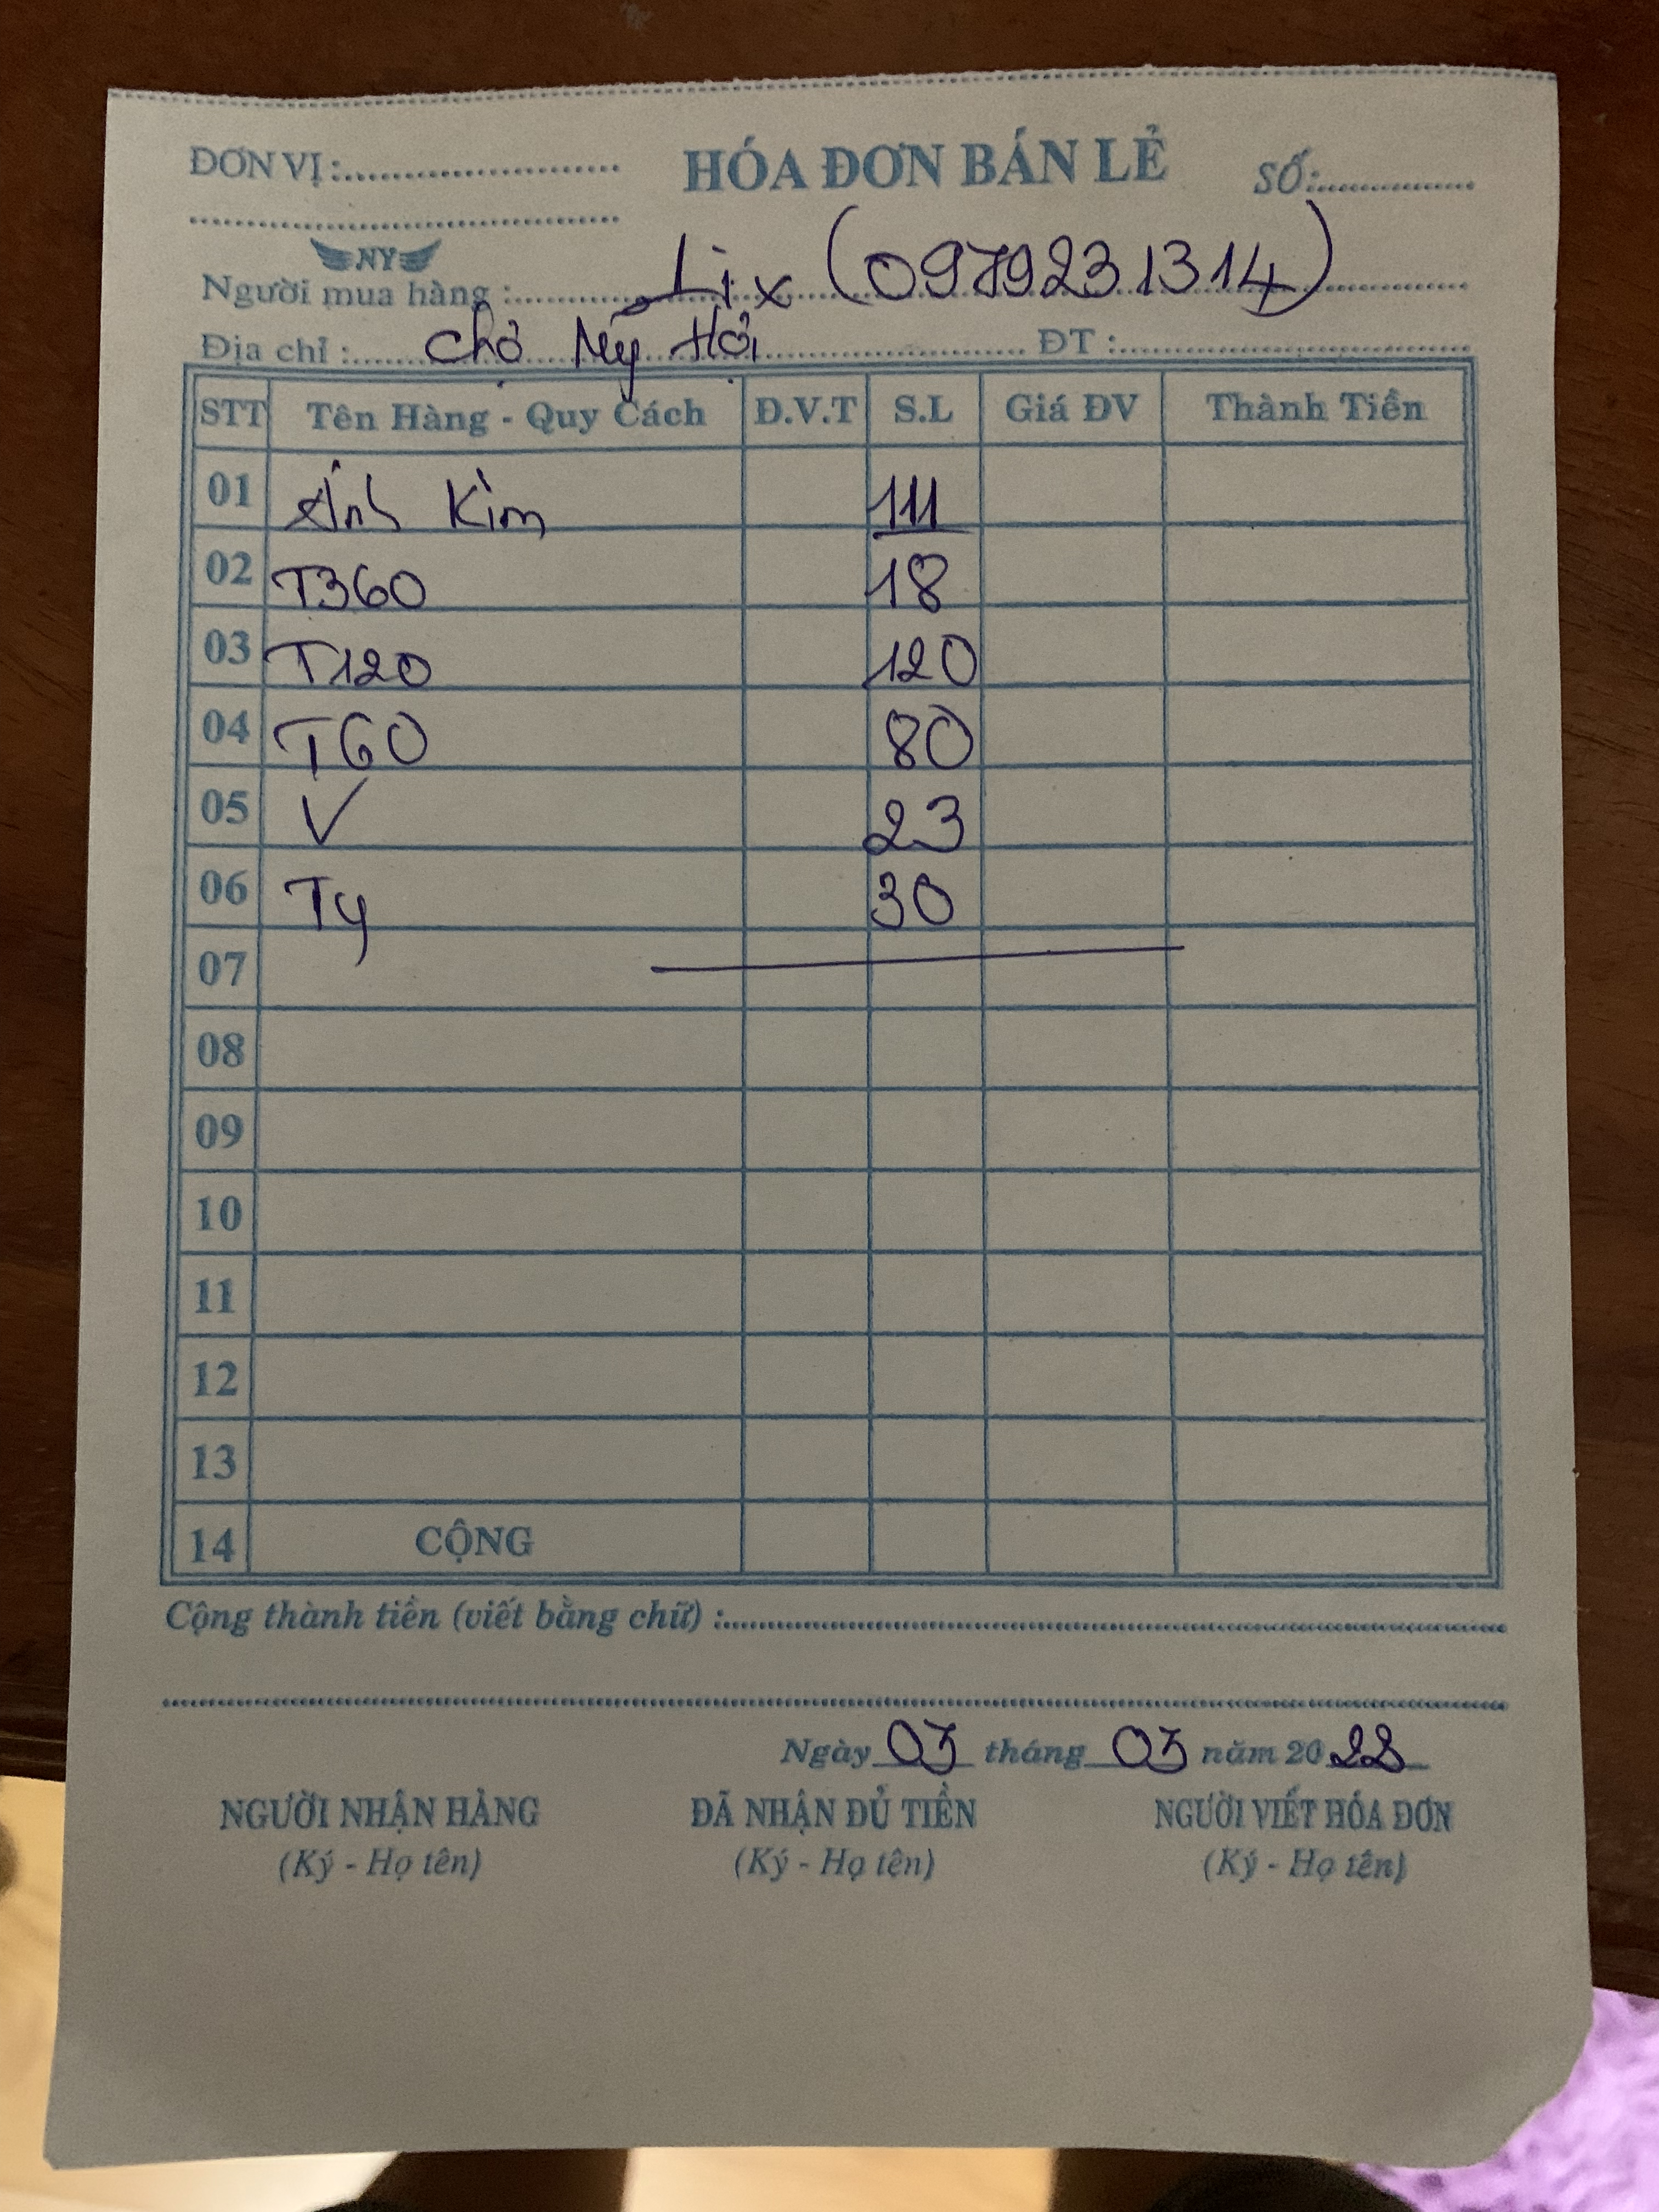 ĐƠN VỊ:
HÓA ĐƠN BÁN LẺ
SỐ:
NY
Người mua hàng : Lix (0979231314)
Địa chỉ : chợ Mỹ Hội ĐT :
STT Tên Hàng - Quy Cách Đ.V.T S.L Giá ĐV Thành Tiền
01 Ánh Kim 111
02 T360 18
03 T120 120
04 T60 80
05 V 23
06 Ty 30
07
08
09
10
11
12
13
14 CỘNG
Cộng thành tiền (viết bằng chữ) :
Ngày 03 tháng 03 năm 2022
NGƯỜI NHẬN HÀNG ĐÃ NHẬN ĐỦ TIỀN NGƯỜI VIẾT HÓA ĐƠN
(Ký - Họ tên) (Ký - Họ tên) (Ký - Họ tên)